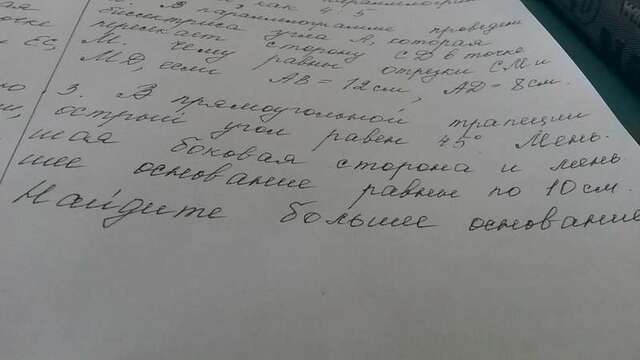 как
В параллелограмме проведена
биссектриса угла А, которая
пересекает сторону СD в точке
М. Чему равны отрезки СМ и
МD, если АВ = 12 см, АD = 8 см.
3. В прямоугольной трапеции
острый угол равен 45° Мень-
шая боковая сторона и мень
шее основание равны по 10 см.
Найдите большее основание